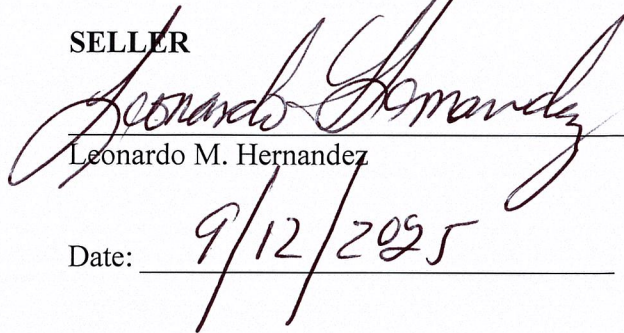 SELLER
Leonardo Hernandez
Leonardo M. Hernandez
Date: 9/12/2025